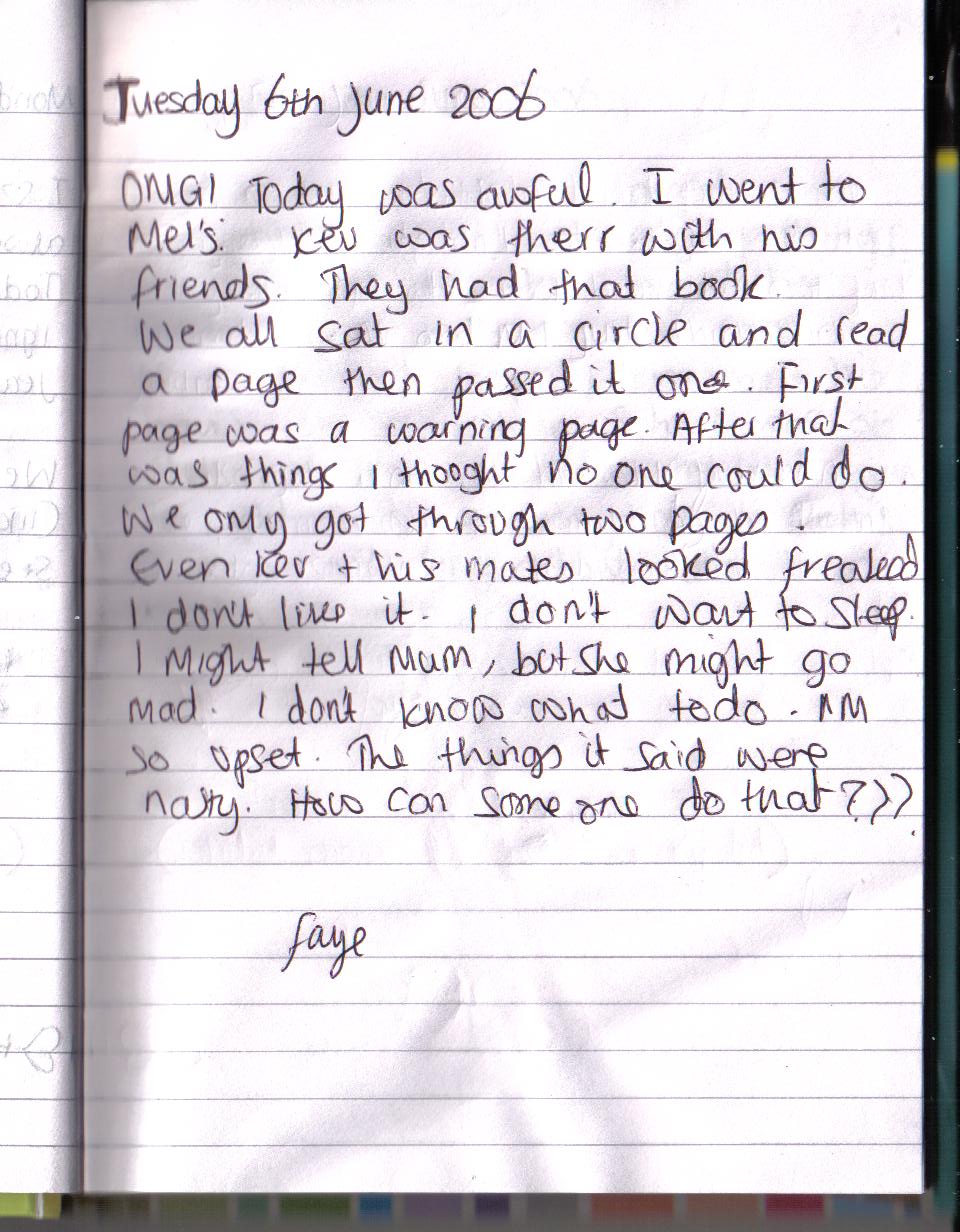 Tuesday 6th June 2006
OMG! Today was awful. I went to
Mel's. Kev was therr with his
friends. They had that book.
We all sat in a circle and read
a page then passed it one. First
page was a warning page. After that
was things I thooght no one could do.
We only got through two pages.
Even Kev + his mates looked freaked
I don't like it. I don't want to sleep.
I might tell Mum, but she might go
mad. I don't know what to do. AM
so upset. The things it said were
nasty. How can some one do that???
faye